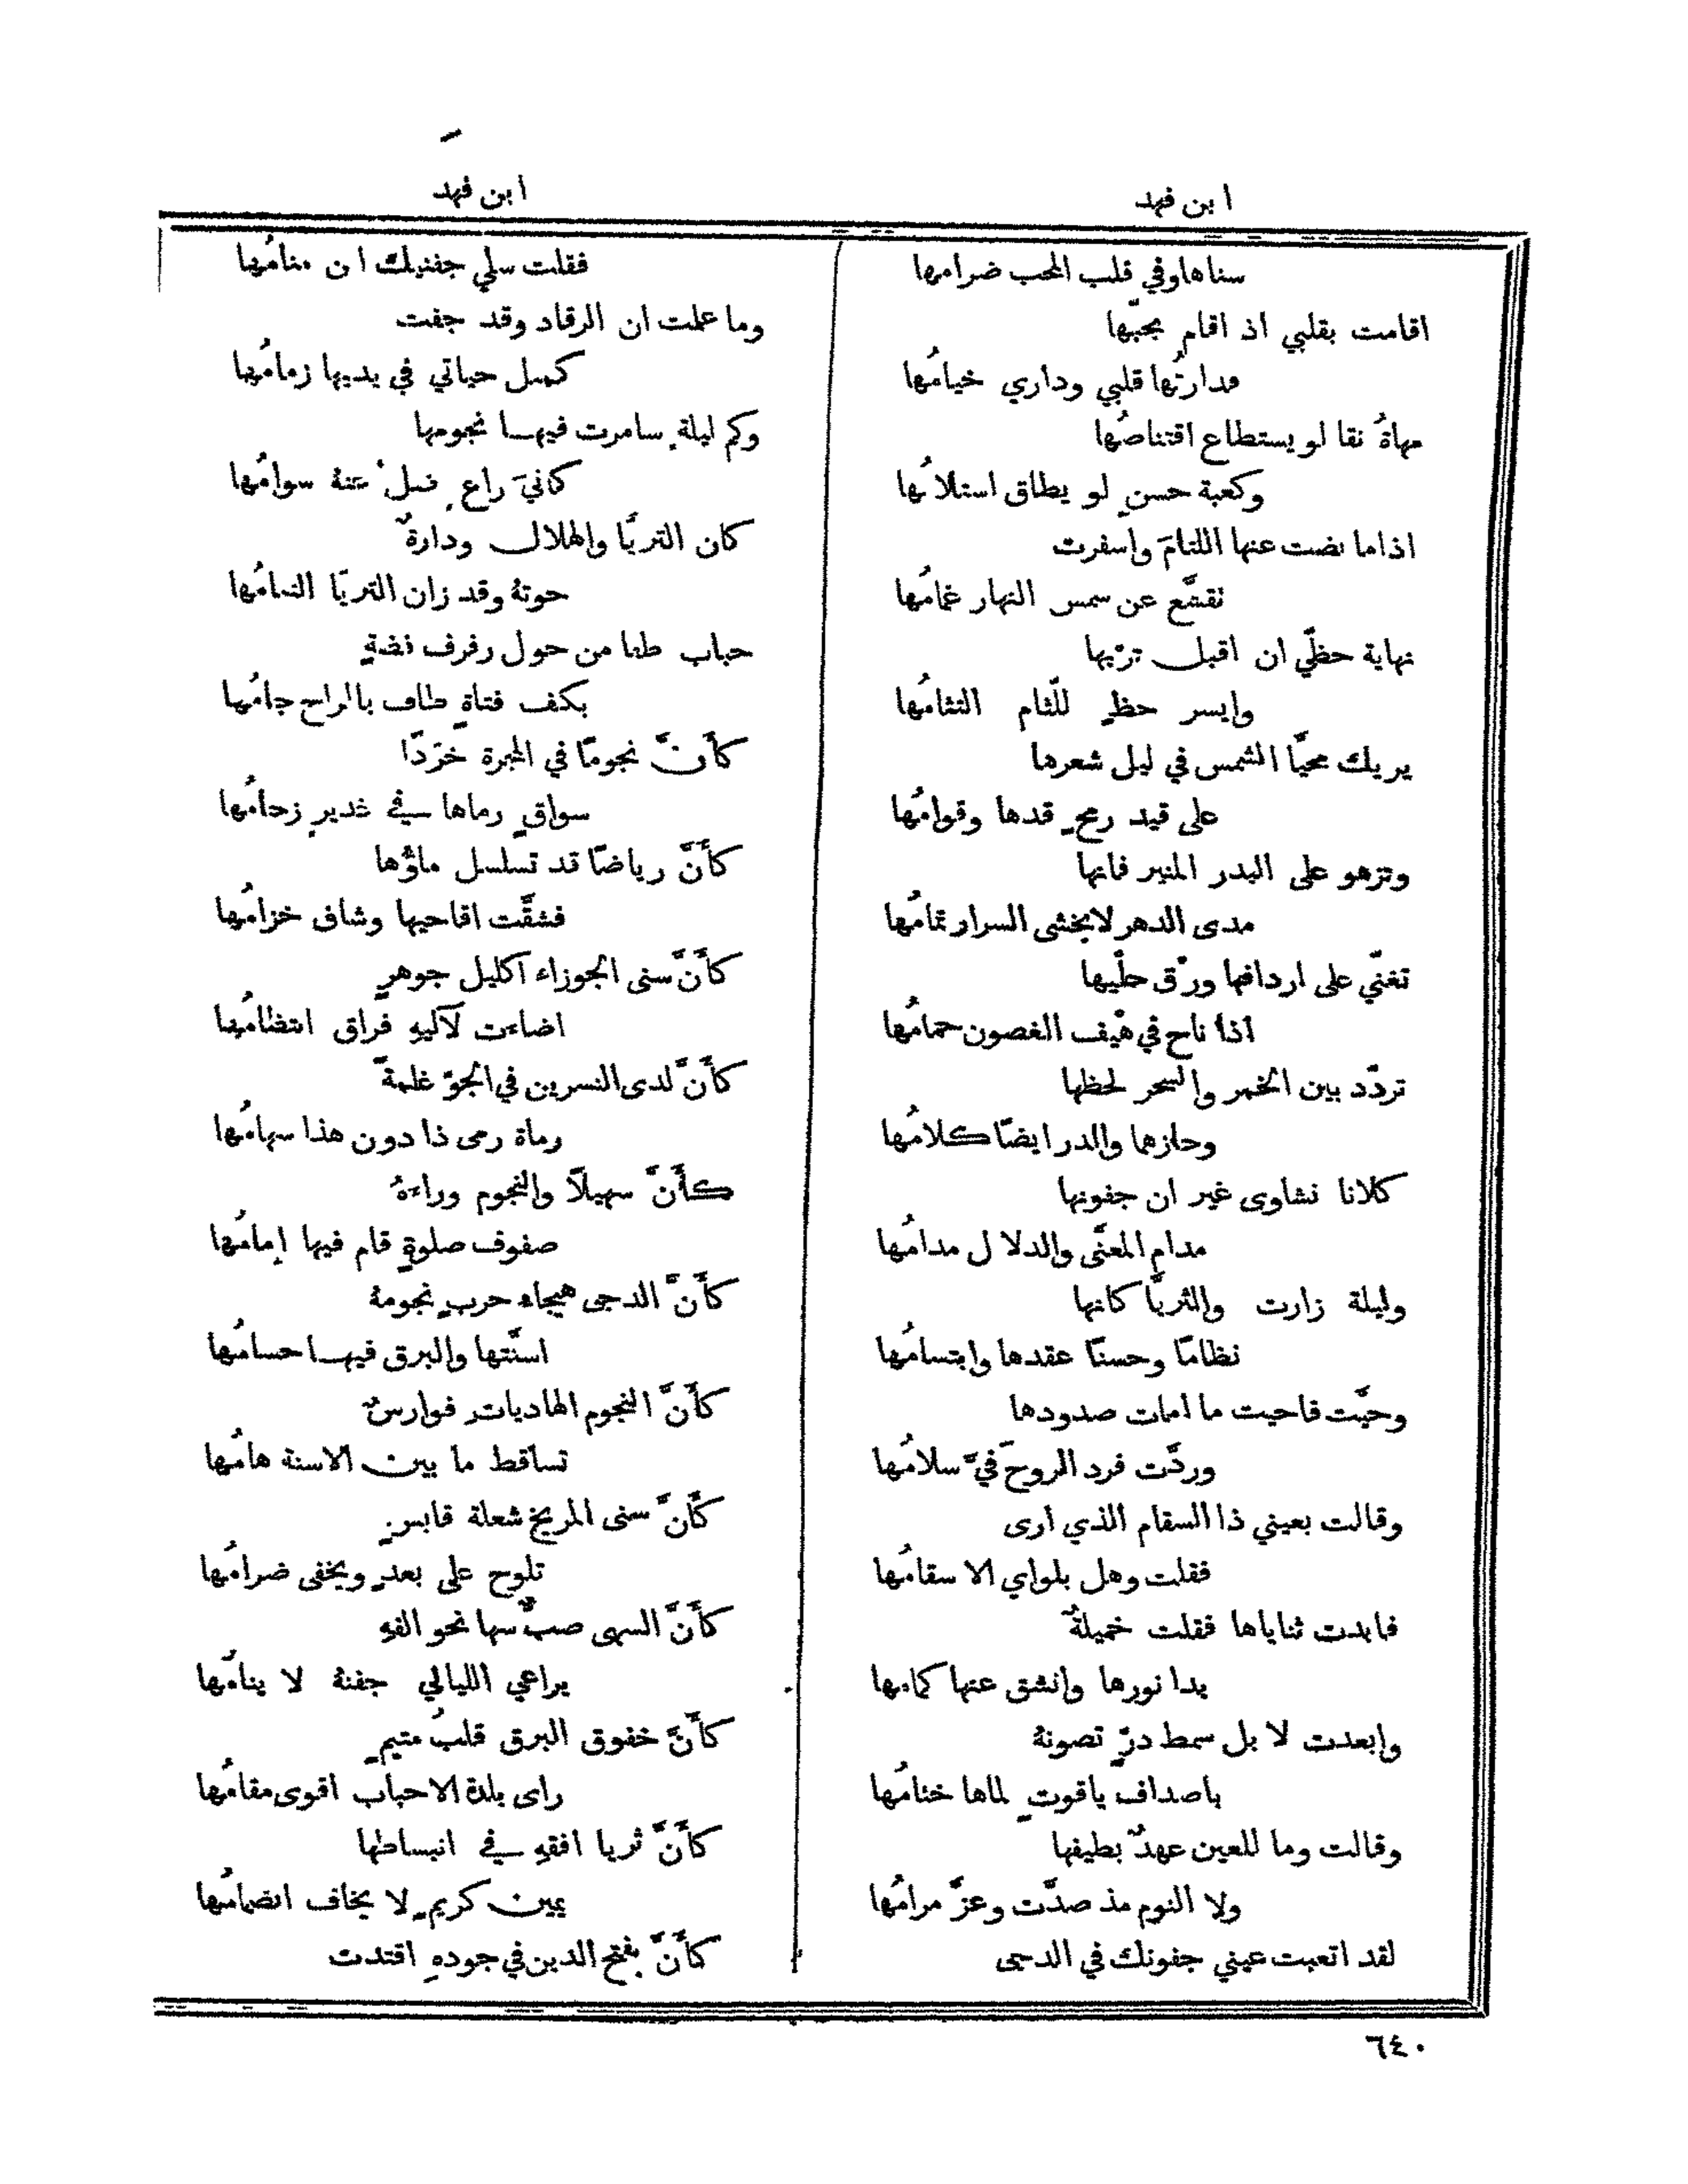 ابن فهد
ابن فهد
سناها وفي قلب المحب ضرامها
اقامت بقلبي اذ اقام بحبّها
فدارتُها قلبي وداري خيامُها
مهاةُ نقا لو يستطاع اقتناصُها
وكعبة حسنٍ لو يطاق استلامُها
اذا ما نضت عنها اللثامَ واسفرت
تقشَّع عن شمس النهار غمامُها
نهاية حظّي ان اقبل تربها
وايسر حظٍ للّثام التثامُها
يريك محيّا الشمس في ليل شعرها
على قيد رمحٍ قدها وقوامُها
وتزهو على البدر المنير فانها
مدى الدهر لا يخشى السرار تمامُها
تغنّي على اردافها ورْق حلْيها
اذا ناح في هيف الغصون حمامُها
تردّد بين الخمر والسحر لحظها
وحازهما والدر ايضًا كلامُها
كلانا نشاوى غير ان جفونها
مدام المعنَّى والدلال مدامُها
وليلة زارت والثريَّا كانها
نظامًا وحسنًا عقدها وابتسامُها
وحيَّت فاحيت ما امات صدودها
وردَّت فرد الروحَ فيَّ سلامُها
وقالت بعيني ذا السقام الذي ارى
فقلت وهل بلواي الا سقامُها
فابدت ثناياها فقلت خميلةٌ
بدا نورها وانشق عنها كمامها
وابعدت لا بل سمط درٍّ تصونهُ
باصداف ياقوتٍ لماها ختامُها
وقالت وما للعين عهدٌ بطيفها
ولا النوم مذ صدَّت وعزَّ مرامُها
لقد اتعبت عيني جفونك في الدجى
فقلت سلي جفنيك ان منامُها
وما علمت ان الرقاد وقد جفت
كمثل حياتي في يديها زمامُها
وكم ليلةٍ سامرت فيها نجومها
كانيَ راعٍ ضلَّ عنهُ سوامُها
كان الثريَّا والهلال ودارةٌ
حوتهُ وقد زان الثريّا التئامُها
حباب طفا من حول رفرف فضةٍ
بكف فتاةٍ طاف بالراح جامُها
كأنَّ نجومًا في المجرة خرّدًا
سواقٍ رماها في غديرٍ زحامُها
كأنَّ رياضًا قد تسلسل ماؤها
فشقَّت اقاحيها وشاف خزامُها
كأنَّ سنى الجوزاء اكليل جوهرٍ
اضاءت لآليهِ فراق انتظامُها
كأنَّ لدى النسرين في الجوّ غلمةً
رماة رمى ذا دون هذا سهامُها
كأنَّ سهيلًا والنجوم وراءهُ
صفوف صلوةٍ قام فيها إمامُها
كأنَّ الدجى هيجاء حربٍ نجومهُ
اسنَّتها والبرق فيها حسامُها
كأنَّ النجوم الهاديات فوارسٌ
تساقط ما بين الاسنة هامُها
كأنَّ سنى المريخ شعلة قابسٍ
تلوح على بعدٍ ويخفى ضرامُها
كأنَّ السهى صبٌّ سها نحو الفهِ
يراعي الليالي جفنهُ لا ينامُها
كأنَّ خفوق البرق قلبُ متيمٍ
راى بلدة الاحباب اقوى مقامُها
كأنَّ ثريا افقهِ في انبساطها
يمين كريمٍ لا يخاف انضمامُها
كأنَّ بفتح الدين في جودهِ اقتدت
٦٤٠